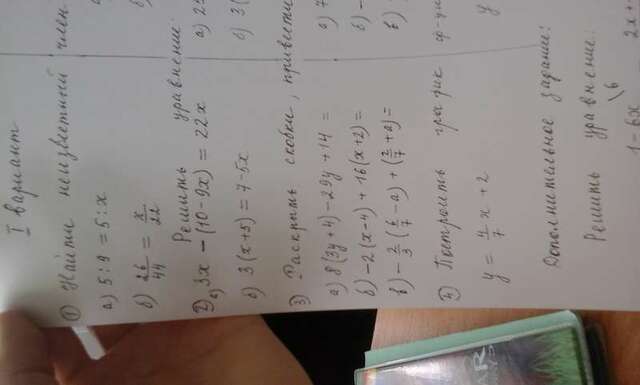 I вариант
① Найти неизвестный член
а) 5:9 = 5:x
б) 26/44 = x/22
② Решить уравнение:
а) 3x - (10-9x) = 22x
б) 3(x+5) = 7-5x
③ Раскрыть скобки, привести
а) 8(3y+4)-29y+14=
б) -2(x-4)+16(x+2)=
в) -2/3(6/7-a)+(2/7+a)=
④ Построить график ф-ци
y = 1/7 x + 2
Дополнительное задание:
Решить уравнение:
1-6x
а)
б) 3(
а) 7
б) -
в)
y
2x+